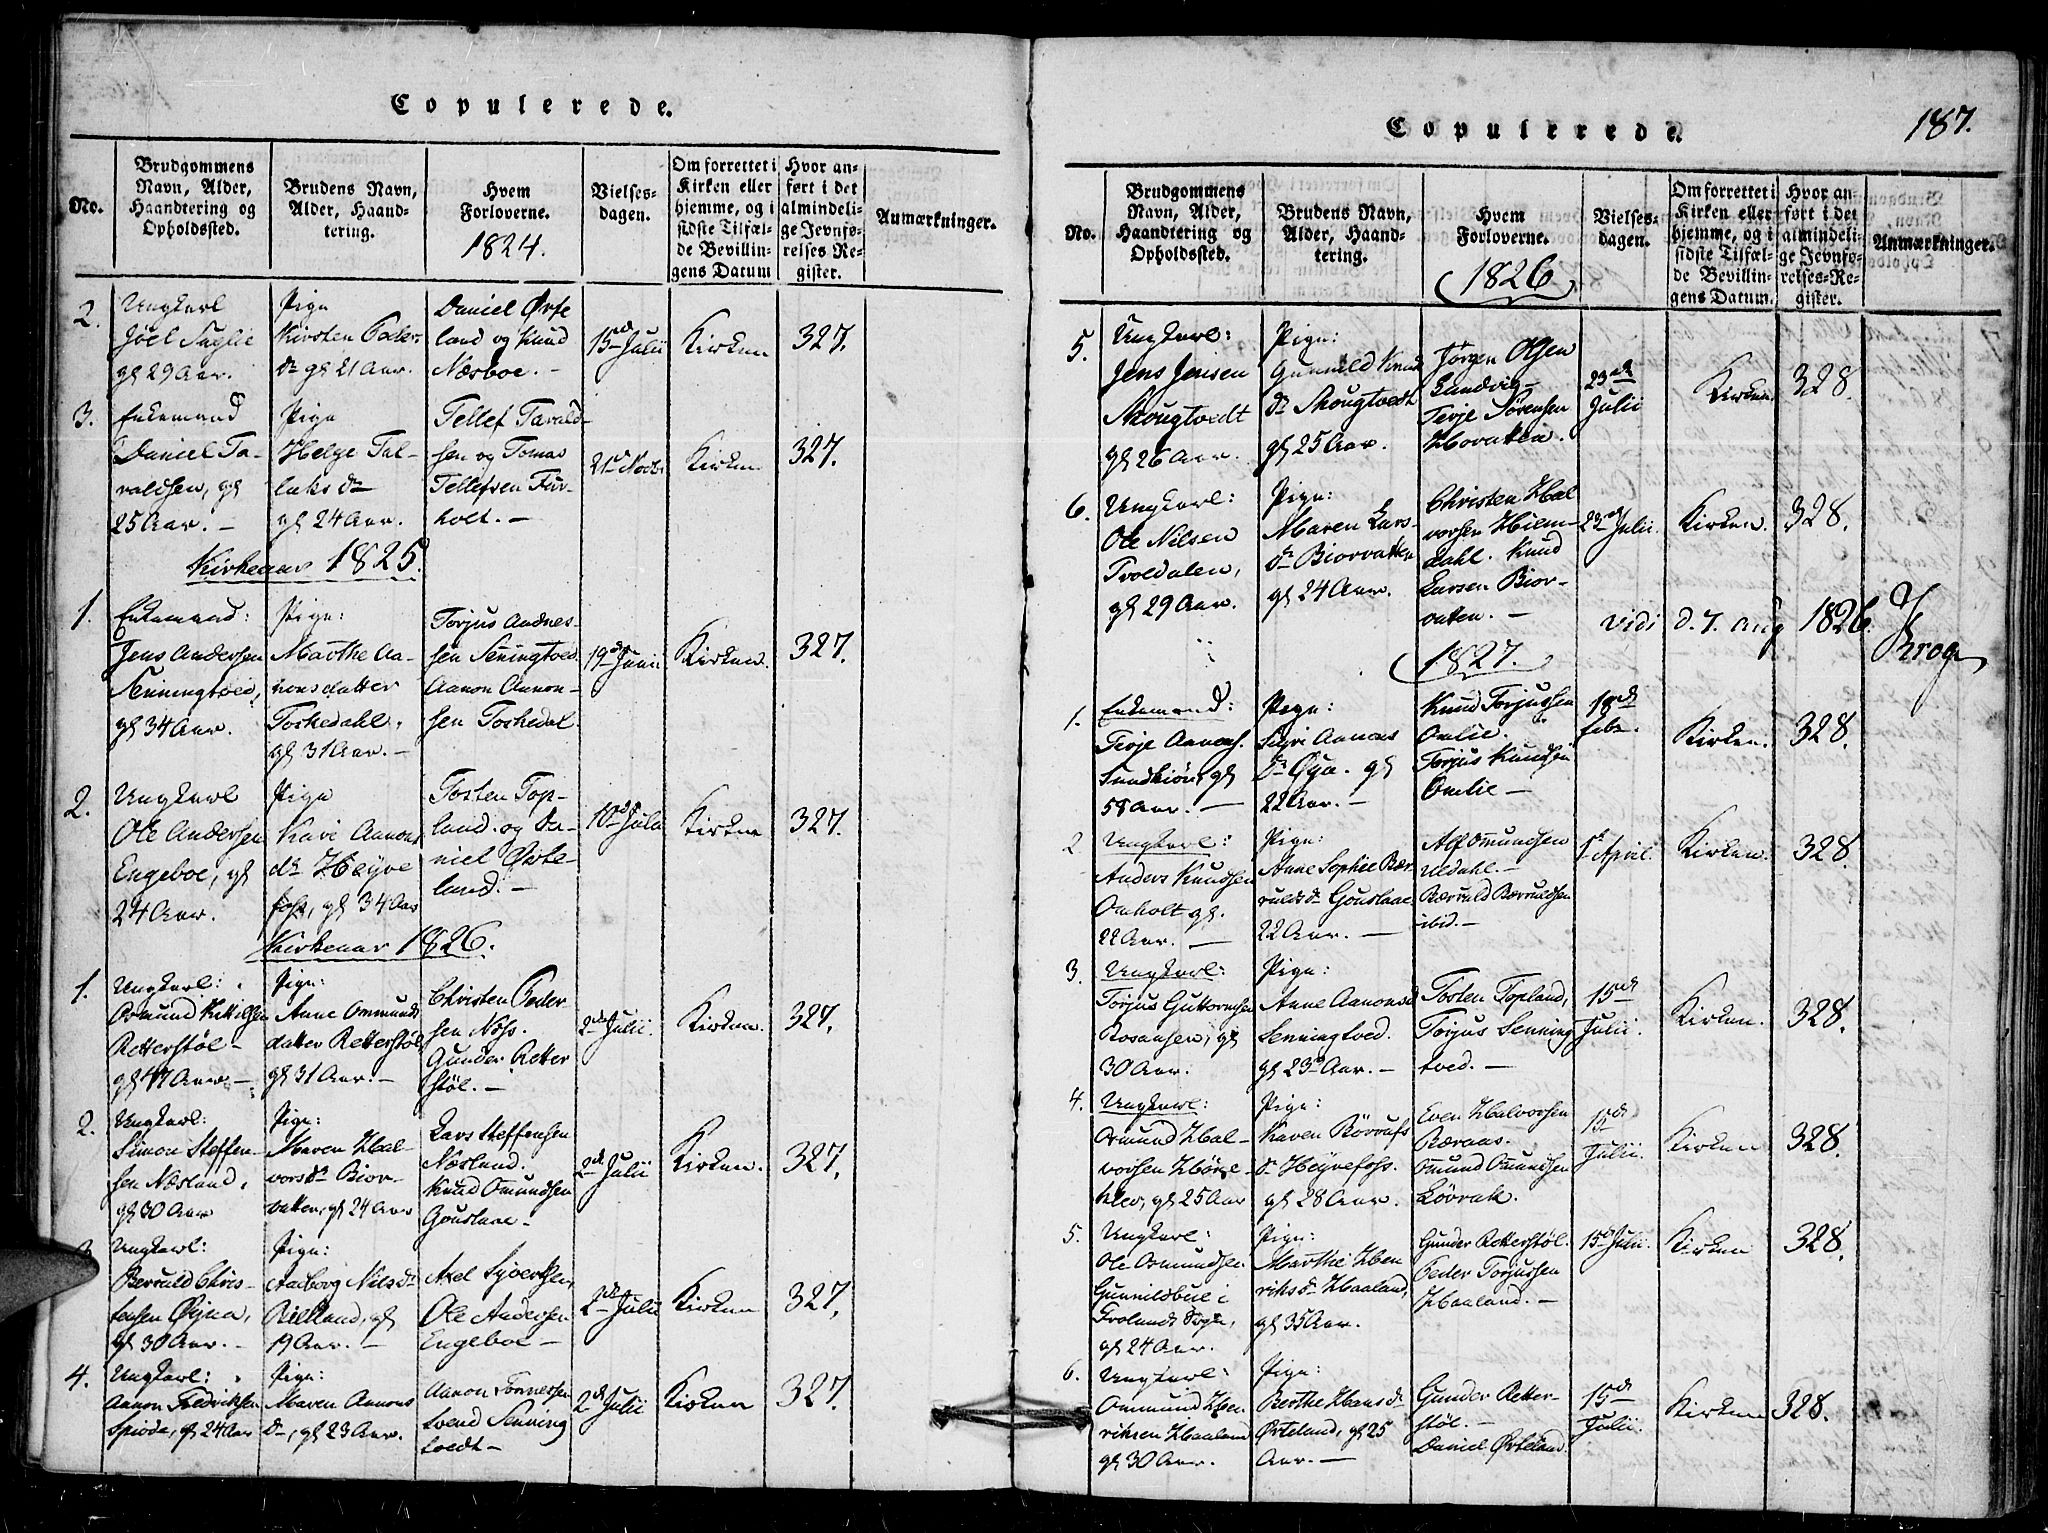 Copulerede.
No.
Brudgommens Navn, Alder, Haandtering og Opholdssted.
Brudens Navn, Alder, Haandtering.
Hvem Forloverne.
1824.
Vielsesdagen.
Om forrettet i Kirken eller hjemme, og i sidste Tilfælde Bevillingens Datum
Hvor anført i det almindelige Jevnførelses Register.
Anmærkninger.
2.
Ungkarl
Joel
gl 29 Aar.
Pige
Kirsten Peders
dr gl 21 Aar.
Daniel Ørte
land og Knud
Næsboe.
15de Julii
Kirken
327.
3.
Enkemand
Daniel Ta-
raldsen, gl
25 Aar. -
Pige
Helge Tal-
laks dr
gl 24 Aar.
Tellef Tarald-
sen og Tomas
Tellefsen Fur-
holt. -
21de
Kirken
327.
Kirkeaar 1825.
1.
Enkemand:
Jens Andersen
Senningtved,
gl 34 Aar.
Pige:
Marthe Aa-
nonsdatter
Toskedahl,
gl 31 Aar. -
Torjus Andres-
sen Seningtved
Aanon Aanon-
sen Toskedal
19de Junii
Kirken.
327.
2.
Ungkarl
Ole Andersen
Engeboe, gl
24 Aar.
Pige
Kari Aanons
dr Heyre
foss, gl 34 Aar
Tosten Top-
land og Da-
niel Ørte-
land. -
10de Julii
Kirken
327.
Kirkeaar 1826.
1.
Ungkarl:
Osmund Kittilsen
Retterstøl -
gl 47 Aar -
Pige:
Anne Ommunds
datter Retterstøl
gl 31 Aar. -
Christen Peder
sen Næss.
Gunder Retter
støl. -
2de Julii.
Kirken.
327.
2.
Ungkarl:
Simon Steffen-
sen Næsland,
gl 30 Aar
Pige:
Maren Hal-
vorsdr Bior-
vatten, gl 24 Aar
Lars Steffensen
Næsland.
Knud Omundsen
Gouslaae -
2de Julii
Kirken.
327.
3.
Ungkarl:
Berruld Chris-
tensen Øyna,
gl 30 Aar. -
Pige:
Aasborg Nilsdr
Rislland, gl
19 Aar. -
Axel Syvertsen,
Ole Andersen
Engeboe -
2de Julii
Kirken
327.
4.
Ungkarl:
Aanon Fredriksen
gl 24 Aar
Pige:
Maren Aanons
dr, gl 23 Aar.
Aanon Tonnessen
Svend Senning
tvedt -
2de Julii
Kirken
327.
Copulerede.
187.
No.
Brudgommens Navn, Alder, Haandtering og Opholdssted.
Brudens Navn, Alder, Haandtering.
Hvem Forloverne.
1826
Vielsesdagen.
Om forrettet i Kirken eller hjemme, og i sidste Tilfælde Bevillingens Datum.
Hvor anført i det almindelige Jevnførelses-Register.
Anmærkninger.
5.
Ungkarl:
Jens Jensen
Skougtvedt
gl 26 Aar.
Pige:
Gunnild Knud
dr Skougtvedt
gl 25 Aar.
Jørgen Olsen
Sandvig -
Terje Sørensen
Hovatten.
23de
Julii
Kirken.
328.
6.
Ungkarl:
Ole Nilsen
Troldalen,
gl 29 Aar.
Pige:
Maren Lars-
dr Biorvatten
gl 24 Aar.
Christen Hal
vorsen Hiem-
dahl. Knud
Larsen Bior-
vaten. -
23de Julii.
Kirken.
328.
Vidi d. 7. Aug 1826.
Krog
1827.
1.
Enkemand:
Terje Aanons.
gl
58 Aar. -
Pige:
Sigri Aanons
dr Øya. gl
22 Aar. -
Knud Torjussen
Omlie.
Torjus Knudsen
Omlie -
18de
febr.
Kirken.
328.
2
Ungkarl:
Anders Knudsen
Omholt gl.
22 Aar. -
Pige:
Anne Sophie Bær-
ruldsdr Gouslaae
22 Aar. -
Alf Omundsen
Uldahl. -
Bærruld Bærruldsen
ibid. -
1de April.
Kirken.
328.
3.
Ungkarl:
Torjus Guttormsen
Rosaasen, gl
30 Aar.
Pige:
Anne Aanonsd
Senningtved.
gl 23 Aar. -
Tosten Topland,
Torjus Senning
tved. -
15de
Julii.
Kirken.
328.
4.
Ungkarl:
Osmund Hal-
vorsen
gl 25 Aar
Pige:
Karen Børrufs
dr Heyrefoss.
gl 28 Aar.
Even Halvorsen
Bæraas.
Omund Omundsen
Løvrak.
15de
Julii.
Kirken
328.
5.
Ungkarl:
Ole Osmundsen
Gunnildsbue i
Frolands Sogn,
gl 24 Aar.
Pige:
Marthe Hen
riksdr Haaland,
gl 35 Aar.
Gunder Retterstøl.
Peder Torjussen
Haaland. -
15de Julii.
Kirken
328.
6.
Ungkarl:
Ommund Hen-
riksen Haaland
gl 30 Aar.
Pige:
Berthe Hansdr
Ørteland, gl 25
Aar. -
Gunder Retter-
støl. -
Daniel Ørteland.
15de
Julii.
Kirken
328.